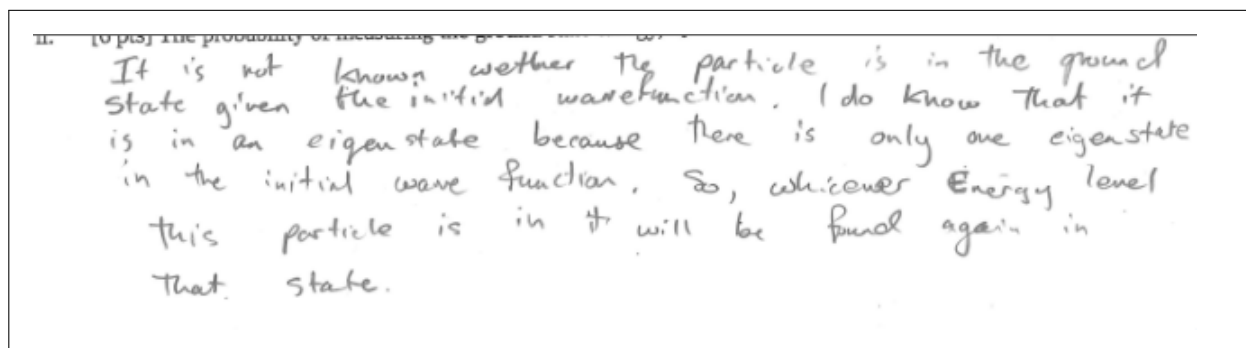 ii. [6 pts] The probability of measuring the ground
It is not known wether the particle is in the ground
state given the initial wavefunction. I do know that it
is in an eigenstate because there is only one eigenstate
in the initial wave function. So, whicever Energy level
this particle is in it will be found again in
that state.